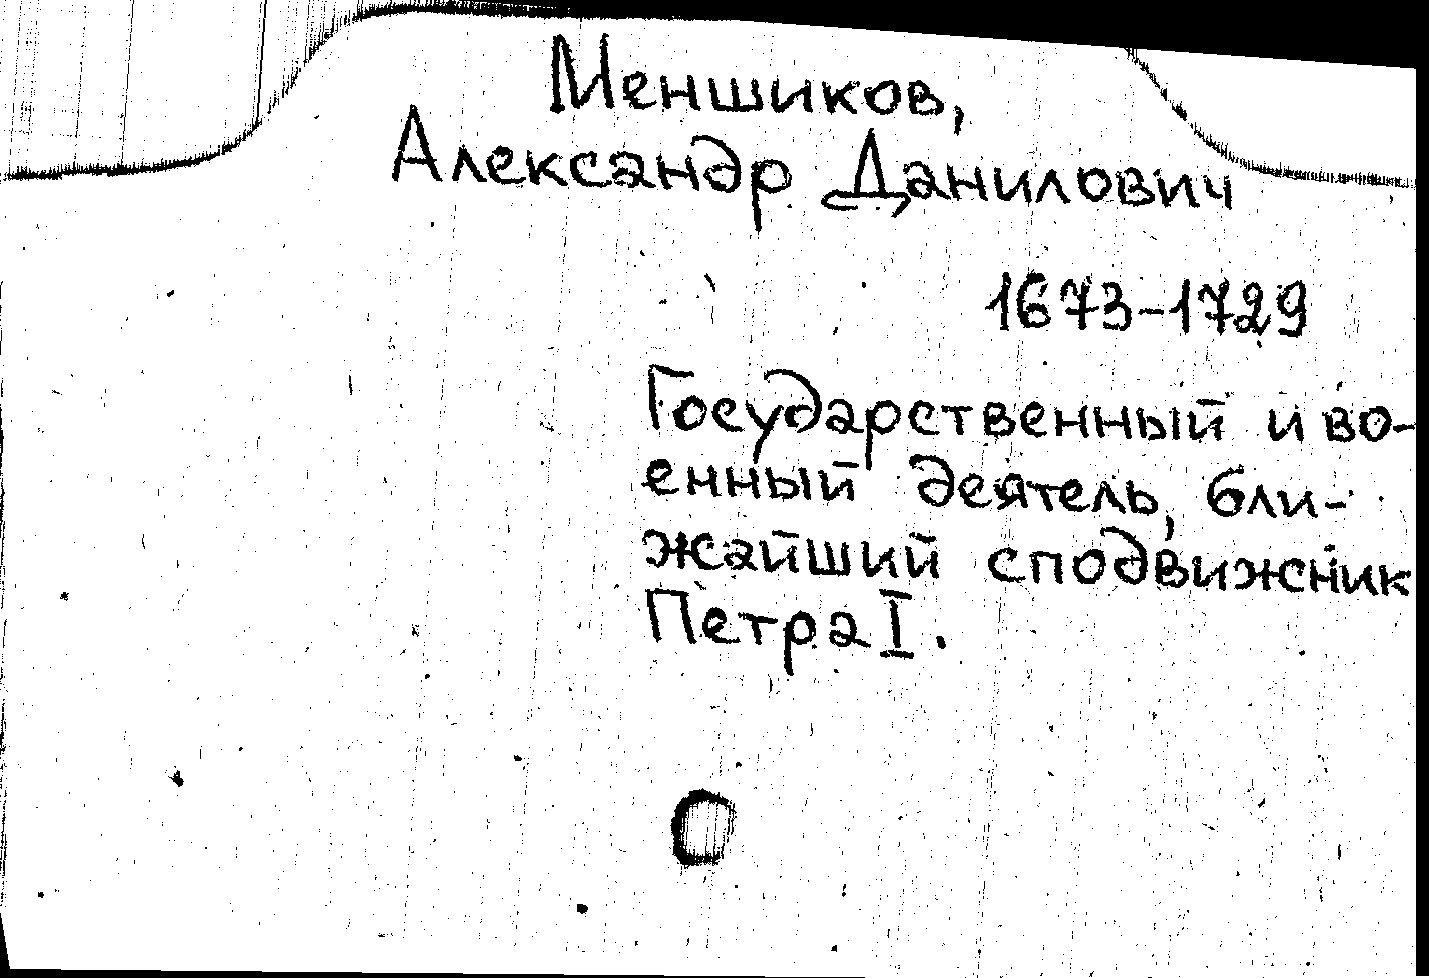 Меншиков,
Александр Данилович
1673-1729
Государственный и во-
енный деятель, бли-
жайший сподвижник
Петра I.